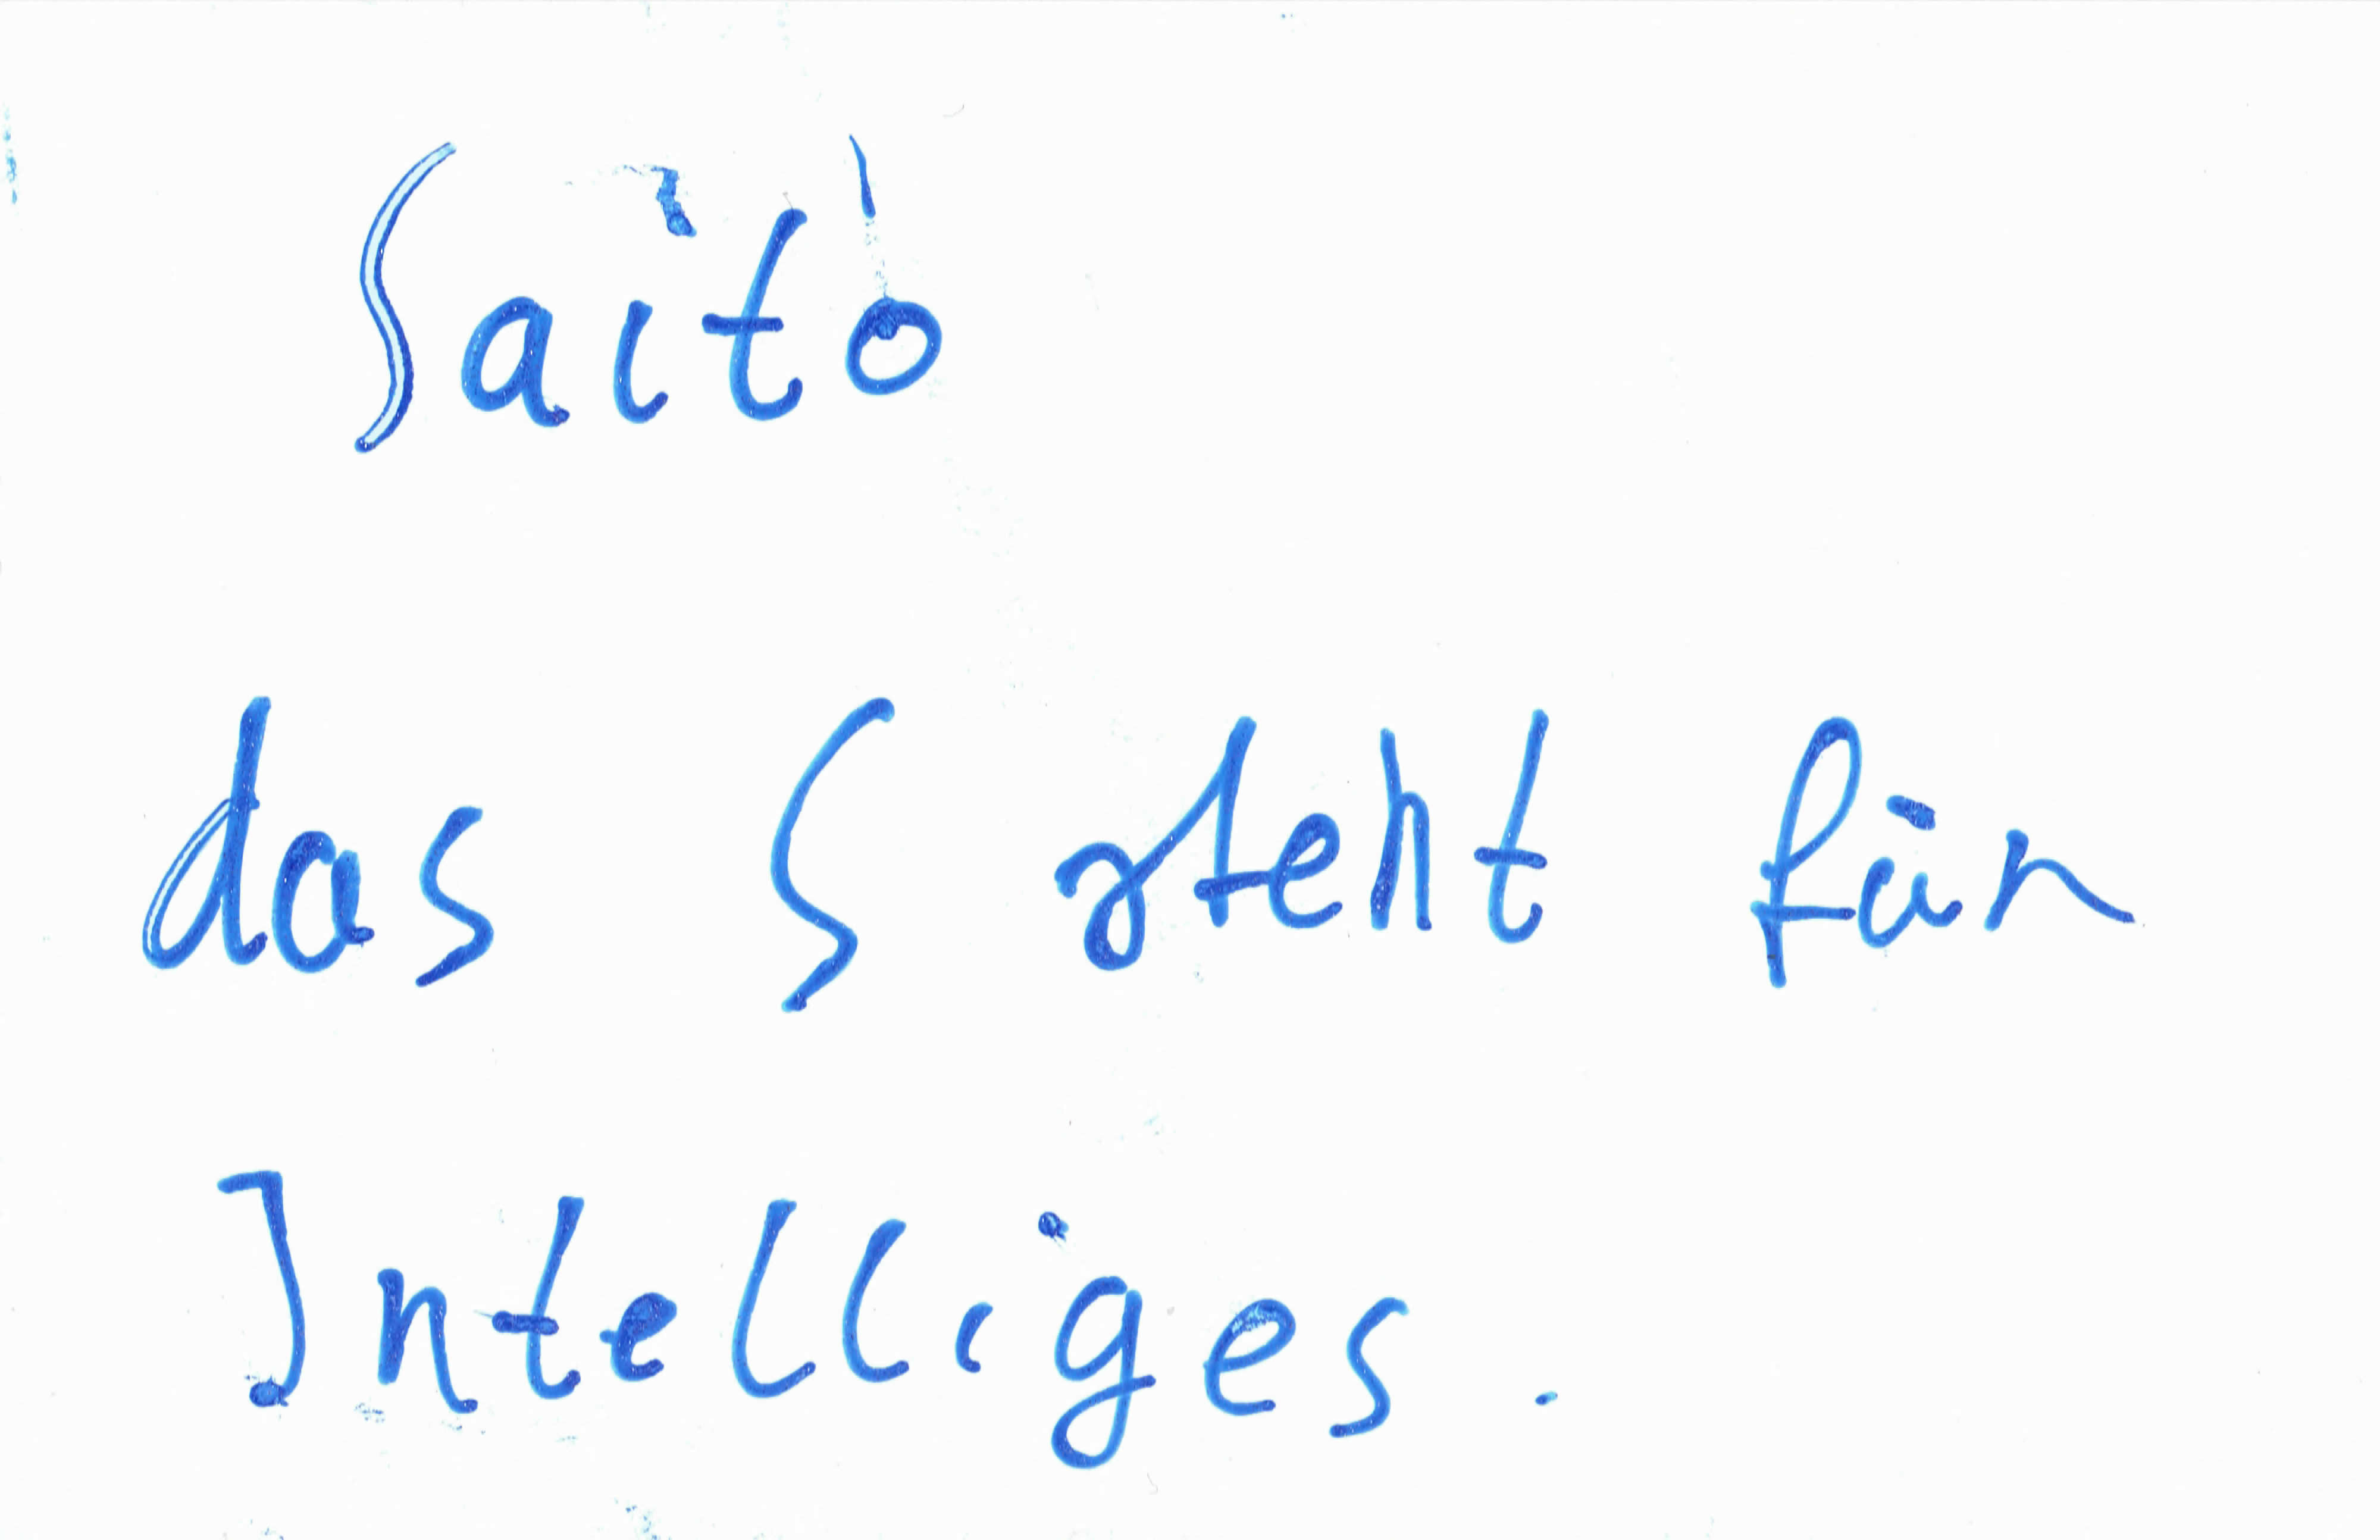 Saito
das S steht für
Intelliges.